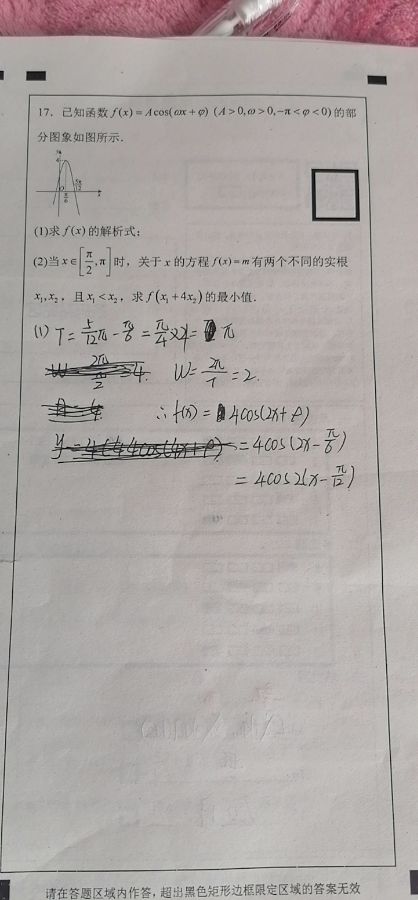 17. 已知函数 f(x) = A cos(ωx + φ) (A > 0, ω > 0, -π < φ < 0) 的部
分图象如图所示.
y
4
O
π/6
5π/12
x
(1)求 f(x) 的解析式;
(2)当 x ∈ [π/2, π] 时，关于 x 的方程 f(x) = m 有两个不同的实根
x₁, x₂，且 x₁ < x₂，求 f(x₁ + 4x₂) 的最小值.
(1) T = 5/12π - π/6 = π/4 × 4 = π
W = 2π/T = 2.
∴ f(x) = 4cos(2x + φ)
= 4cos(2x - π/6)
= 4cos2(x - π/12)
请在答题区域内作答，超出黑色矩形边框限定区域的答案无效